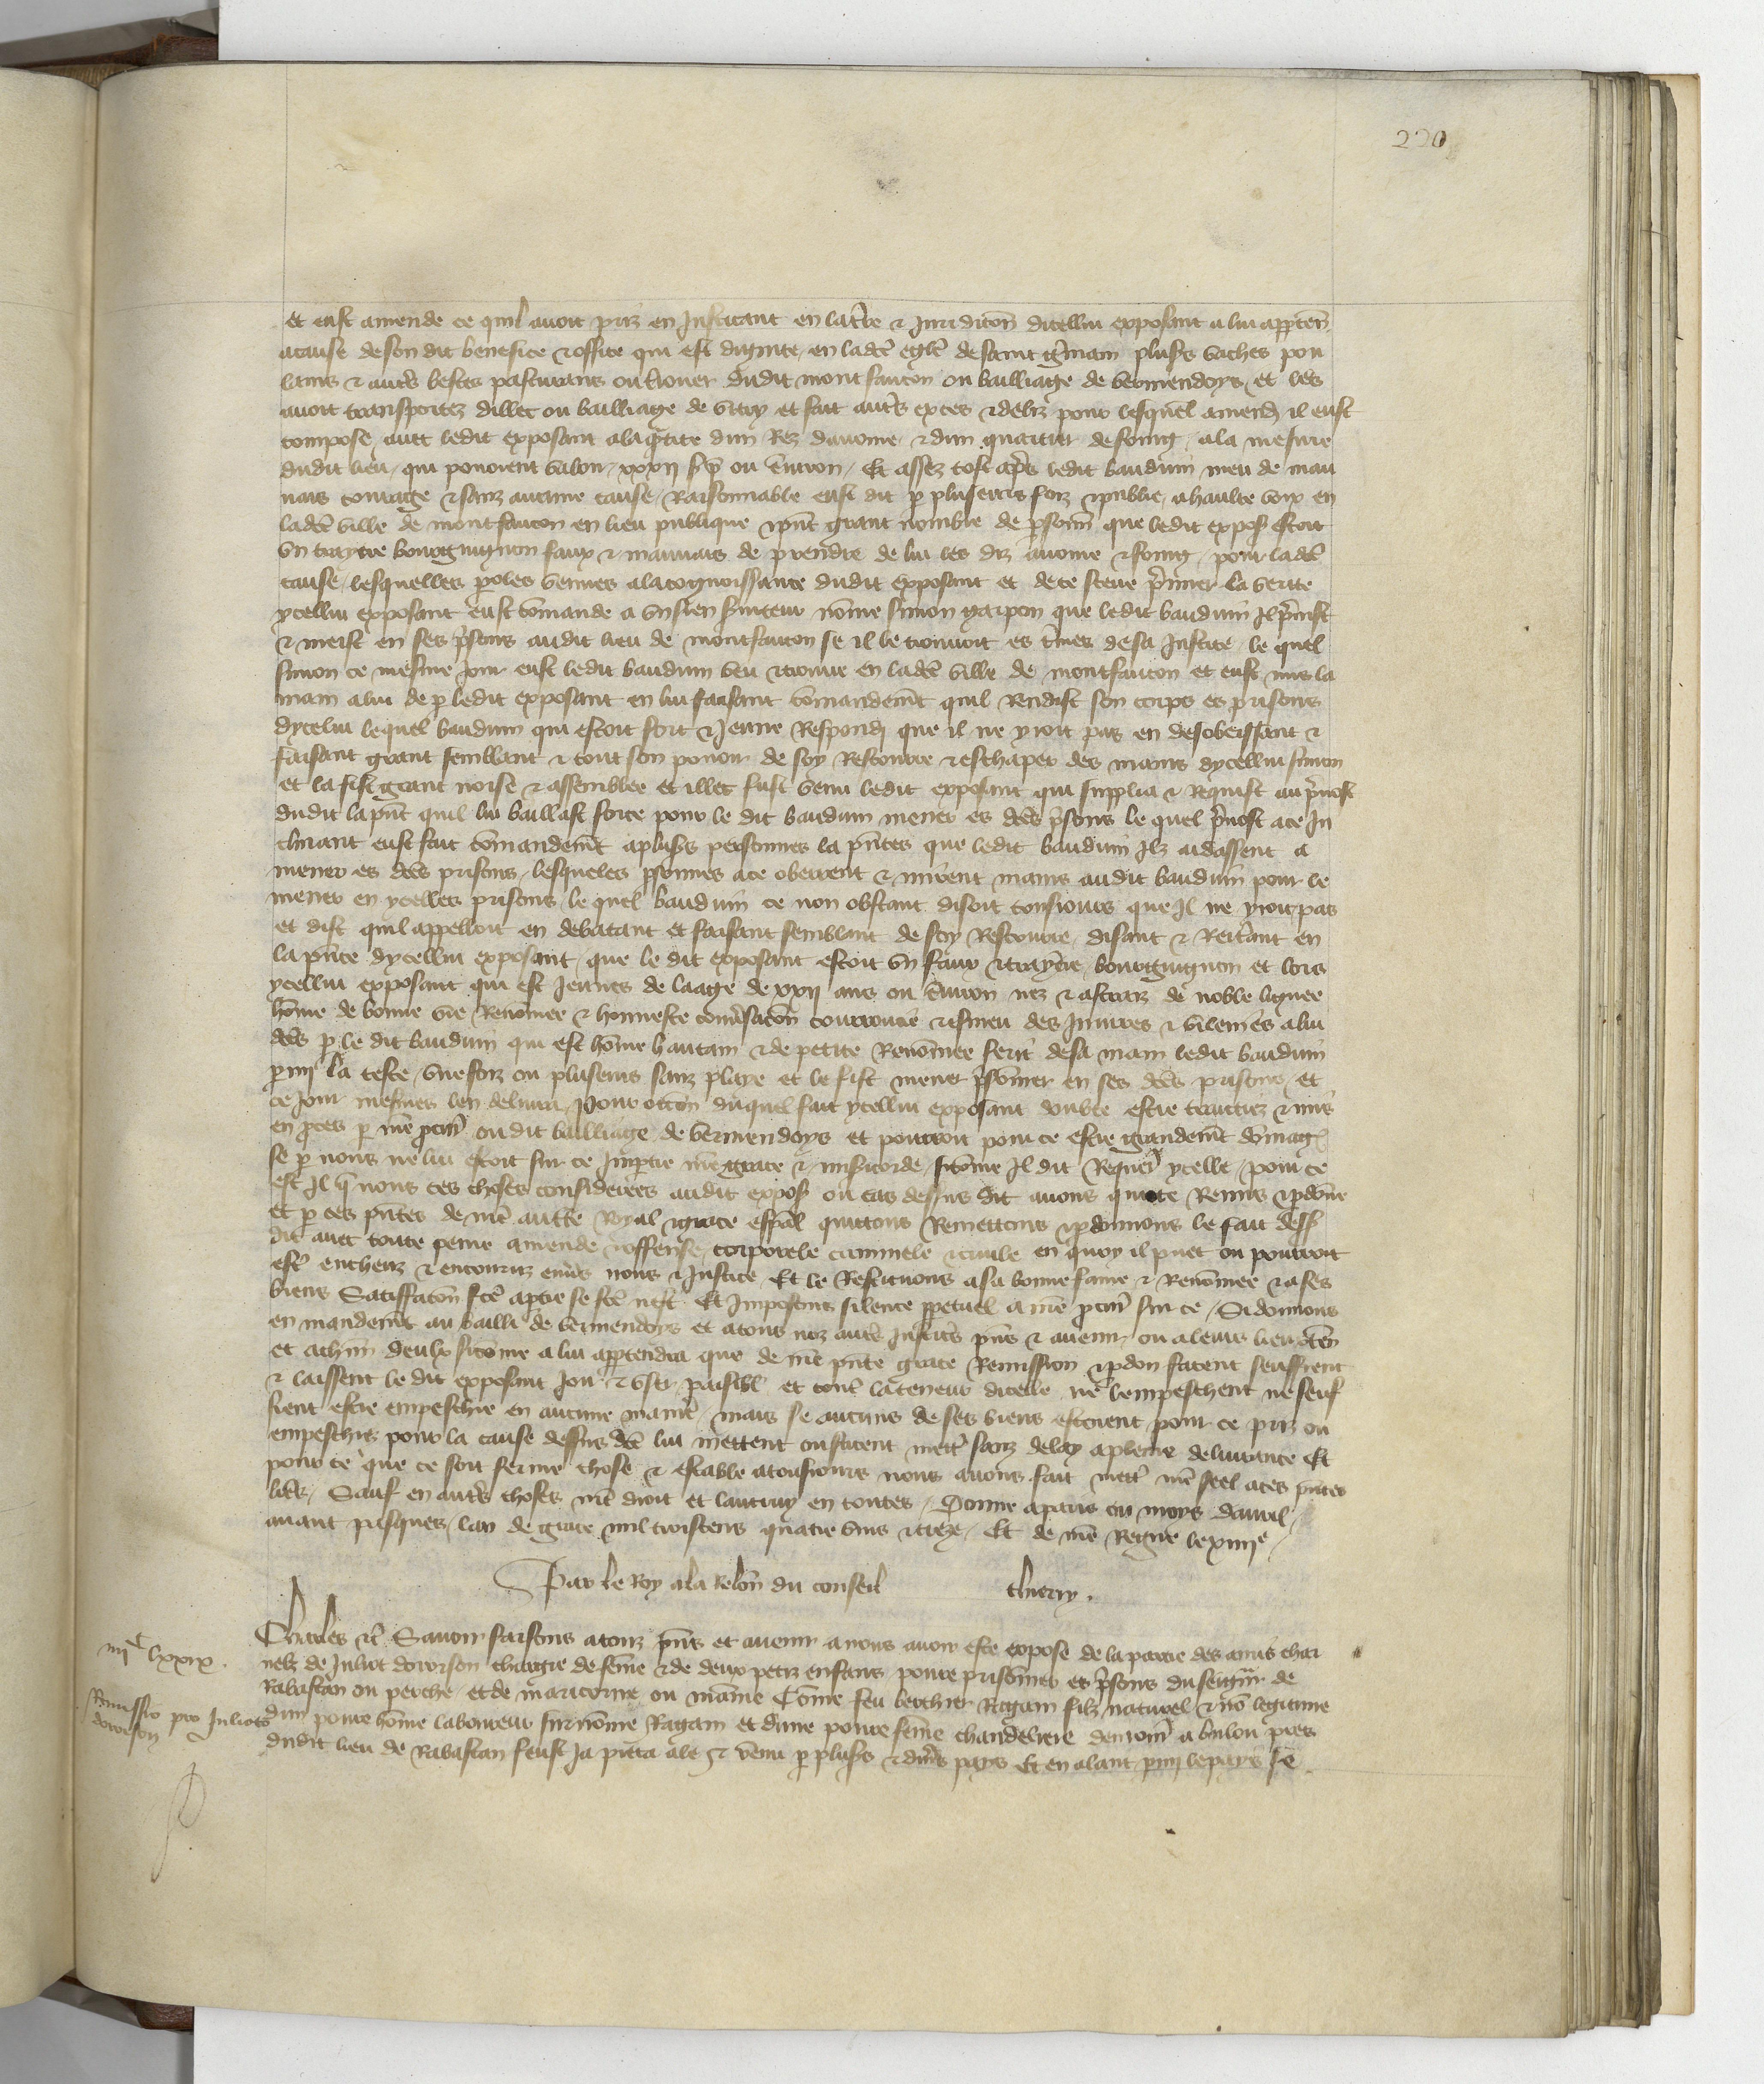 220
et eust amende ce quil avoit pris en Justicant en la t̃re & Juridicõn dicellui exposant a lui apparten̄
a cause de son dit benefice & office qui est dignite en lad̃ egl̃e de saint g̃main plus̃s vaches pou
lains & aut̃s bestes pasturans ou t̃rouer dudit montfaucon ou bailliage de vermendoys et les
avoit transportez dillec ou bailliage de vitry et fait aut̃s exces & deliz pour lesquelz amend̃ il eust
compose avec ledit exposant a la q̃ntite dun Rez davoine & dun quartier de soing a la mesure
dudit lieu qui povoient valoir xxxii s̃ p̃ ou environ Et assez tost ap̃s ledit bauduin meu de mau
vais courage & sanz aucune cause Raisonnable eust dit p̱ pluseurs foiz & publie a haulte voix en
lad̃ ville de montfaucon en lieu publique & p̃nt grant nombre de p̱sonn̄ que ledit expos̃ estoit
un traytre bourguignon faux & mauvais de prendre de lui les diz avoine & foing pour lad̃
cause lesquelles p̱oles venues a la cognoissance dudit exposant et de ce sceue p̃mier la verite
ycellui exposant eust cõmande a un sien s̃viteur nõme simon garpon que ledit bauduin Il p̃nist
& meist en ses p̃sons audit lieu de montfaucon se il le trouvoit es t̃mes de sa Justice le quel
simon ce mesme jour eust ledit bauduin veu & trouve en lad̃ ville de montfaucon et eust mis la
main a lui de p̱ ledit exposant en lui faisant cõmandem̃t quil Rendist son corps es prisons
dycelui lequel bauduin qui estoit fort & Jeune Respondi que il ne yroit pas en desobeissant &
faisant grant semblant & tout son povoir de soy Rescourre & eschaper des mains dycellui simon
et la fist grant noise & assemblee et illec fust venu ledit exposant qui supplia & Requist au p̃vost
dudit la p̃nt quil lui baillast force pour le dit bauduin mener es d̃ p̃sons le quel p̃vost a ce In
clinant eust fait cõmandem̃t a plus̃s personnes la p̃ntes que ledit bauduin Ilz aidassent a
mener es d̃ prisons lesqueles p̱sonnes a ce obeirent & mirent mains audit bauduin pour le
mener en ycelles prisons le quel bauduin ce non obstant disoit tousiours que Il ne yroit pas
et dist quil appelloit en debatant et faisant semblant de soy Rescourre disant & Reit̃ant en
la p̃nce dycellui exposant que le dit exposant estoit un faux & traytre bourguignon et lors
ycellui exposant qui est Jeunes de laage de xxii ans ou environ nez & astraiz de noble lignee
hõme de bonne vie Renõmee & honneste conṽsacõn courrouce & esmeu des Injures & vilenies a lui
d̃ p̱ le dit bauduin qui est hõme hautain & de petite Renõmee feri de sa main ledit bauduin
p̱mi la teste une foiz ou pluseurs sanz playe et le fist mener p̃sonnier en ses d̃ prisons et
ce jour mesmes len delivra Pour occõn duquel fait ycellui exposant doubte estre traittiez & mis
en p̱ces p̱ nr̃e p̱cur̃ ou dit bailliage de vermendoys et pourroit pour ce estre grandem̃t dõmag̃
se p̱ nous ne lui estoit sur ce Imp̱tie nr̃e grace & mis̃icorde si cõme Il dit Requer̃ ycelle pour ce
est Il q̃ nous ces choses considerees audit expos̃ ou cas dessus dit avons quicte Remis & p̱donne
et p̱ ces p̃ntes de nr̃e auct̃e Royal & grace esp̃al quittons Remettons & p̱donnons le fait dess̃
dit avec toute peine amende & offense corporele criminele & civile en quoy il puet ou pourroit
est̃ encheuz & encouruz enṽs nous & Justice Et le Restituons a sa bonne fame & Renõmee & a ses
biens Satisfacõn f̃c̃e a p̱tie se f̃c̃e nest Et Imposons silence p̱petuel a nr̃e p̱cur̃ sur ce Si donnons
en mandem̃t au bailli de vermendoys et a tous noz aut̃s Justic̃s p̃ns & avenir ou a leurs lieuxten̄
et a ch̃un deulx si cõme a lui app̱tendra que de nr̃e p̃nte grace Remission & p̱don facent seuffrent
& laissent le dit exposant Joir & user paisibl̃ et cont̃ la teneur dicelle ne lempeschent ne seuf
frent estre empeschie en aucune manie̾ mais se aucuns de ses biens estoient pour ce priz ou
empeschiez pour la cause dessus d̃ lui mettent ou facent mett̃ sanz delay a pleine delivrance Et
pour ce que ce soit ferme chose & estable a tousiours nous avons fait mett̃ nr̃e seel a ces p̃ntes
l̃res Sauf en aut̃s choses nr̃e droit et lautruy en toutes Donne a paris ou moys davril
avant pasques lan de grace mil troiscens quatre vins & treze Et de nr̃e Regne le xiiiie
Par le Roy a la rel̃on du conseil thierry.
iiiic lxxix.
Remissio pro Juliot
dororson
Charles &c̃ Savoir faisons a touz p̃ns et avenir a nous avoir este expose de la partie des amis char
nelz de Juliot dororson chargie de fẽme & de deux petiz enfans povre prisonnier es p̃sons du seigñr de
Rabastan ou perche et de maricorne ou maine Cõme feu berthier Ragain filz naturel & nõ legitime
dun povre hõme laboureur surnõme Ragain et dune povre fẽme chandeliere demour̃ a bulou pres
dudit lieu de Rabastan feust Ja pieca ale & venu p̱ plus̃s & diṽs pays Et en alant p̱mi le pays se